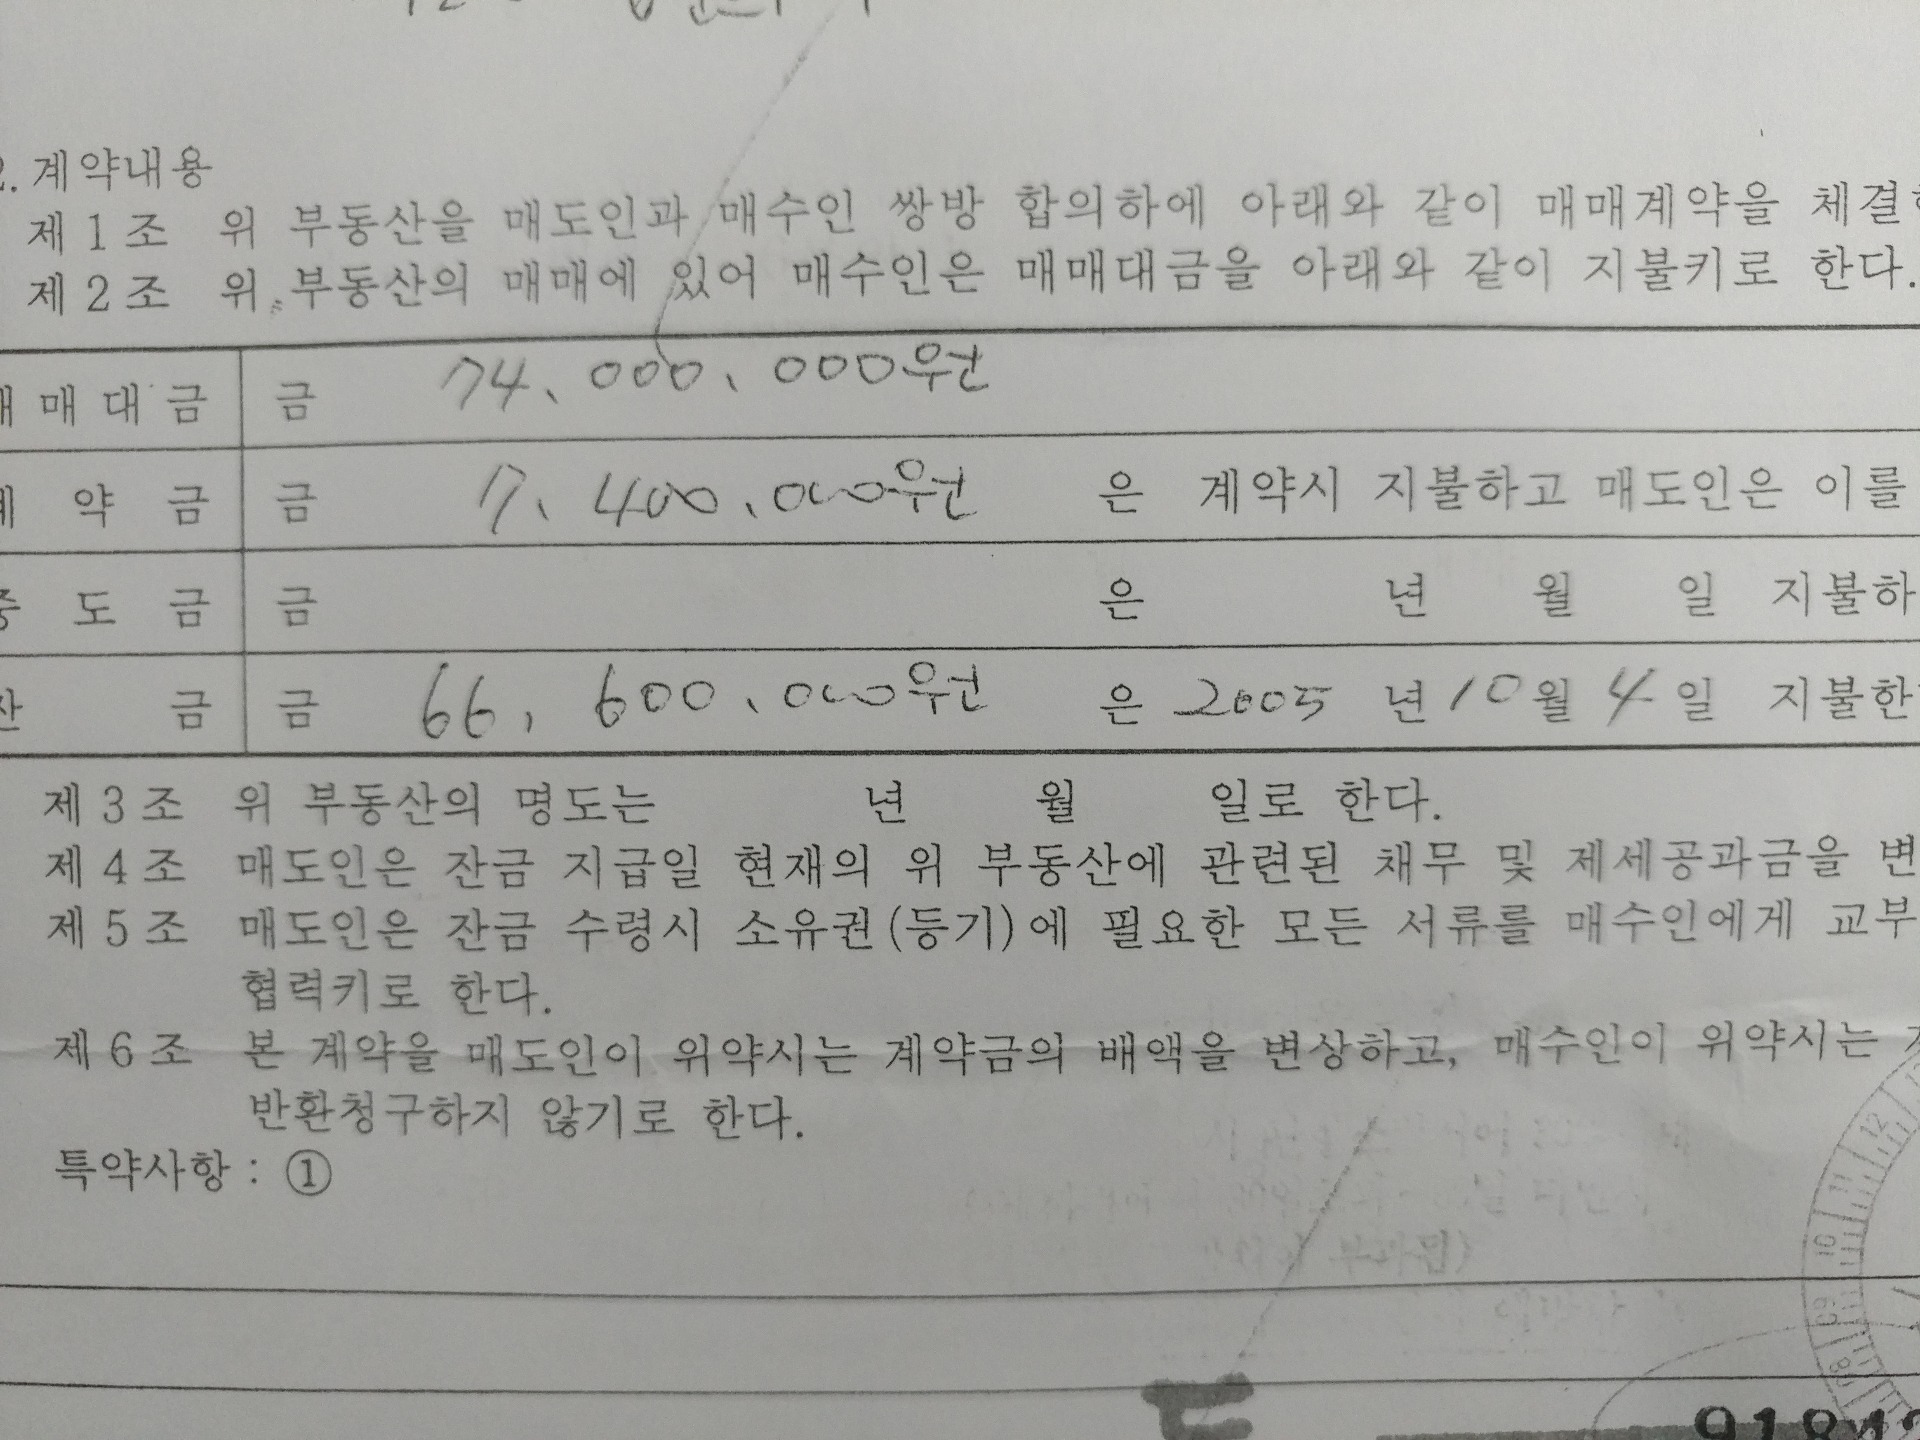 계약내용
제1조 위 부동산을 매도인과 매수인 쌍방 합의하에 아래와 같이 매매계약을 체결
제2조 위 부동산의 매매에 있어 매수인은 매매대금을 아래와 같이 지불키로 한다.
매대금 금 74,000,000원
약금 금 7,400,000원 은 계약시 지불하고 매도인은 이를
도금 금 은 년 월 일 지불하
금 금 66,600,000원 은 2005 년 10 월 4 일 지불한
제3조 위 부동산의 명도는 년 월 일로 한다.
제4조 매도인은 잔금 지급일 현재의 위 부동산에 관련된 채무 및 제세공과금을 변
제5조 매도인은 잔금 수령시 소유권(등기)에 필요한 모든 서류를 매수인에게 교부
협력키로 한다.
제6조 본 계약을 매도인이 위약시는 계약금의 배액을 변상하고, 매수인이 위약시는
반환청구하지 않기로 한다.
특약사항 : ①